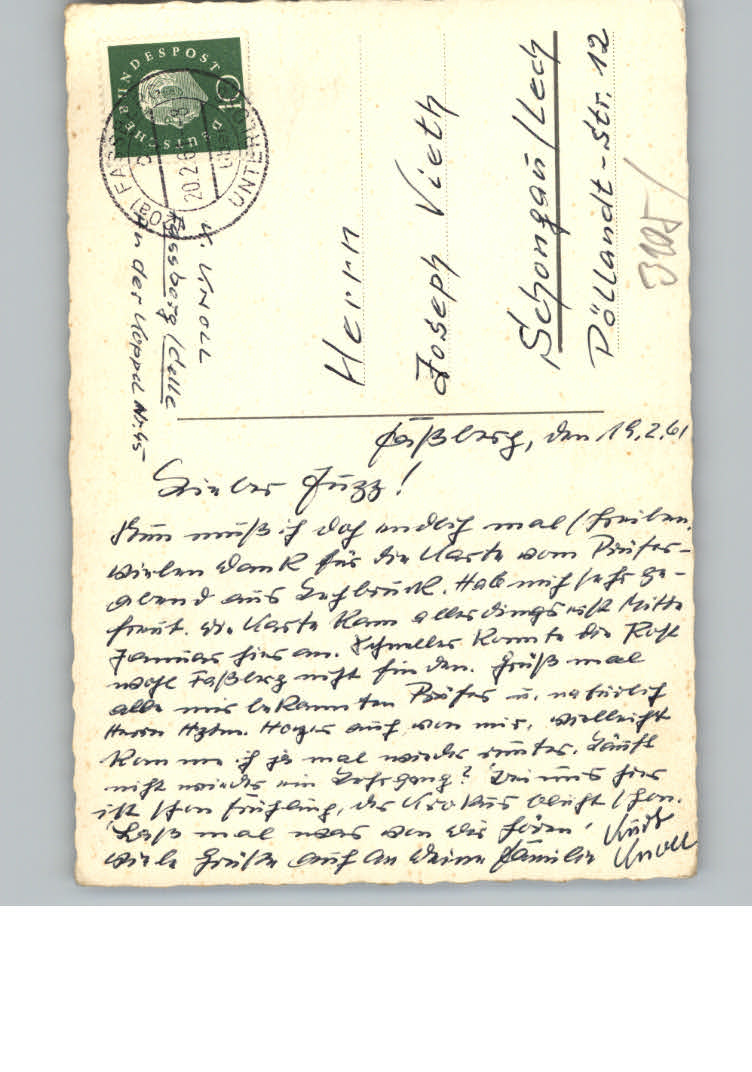 DEUTSCHE BUNDESPOST
10
20.2.61
UNTER
K. Knoll
Fassberg/Celle
An der Koppel Nr. 45
Herrn
Joseph Vieth
Schongau/Lech
Döllandt-Str. 12
Faßberg, den 19.2.61
Lieber Juzz!
Nun muß ich doch endlich mal schreiben.
Vielen Dank für die Karte vom Prüfer-
abend aus Lechbruck. Hab mich sehr ge-
freut. Die Karte kam allerdings erst Mitte
Januar hier an. Schneller konnte die Post
wohl Faßberg nicht finden. Grüß mal
alle mir bekannten Prüfer u. natürlich
Herrn Hptm. auch von mir. Vielleicht
komme ich ja mal wieder runter. Läuft
nicht wieder ein Lehrgang? Bei uns hier
ist schon Frühling, der Krokus blüht schon.
Laß mal was von Dir hören.
Viele Grüße auch an Deine Familie Kurt
Knoll